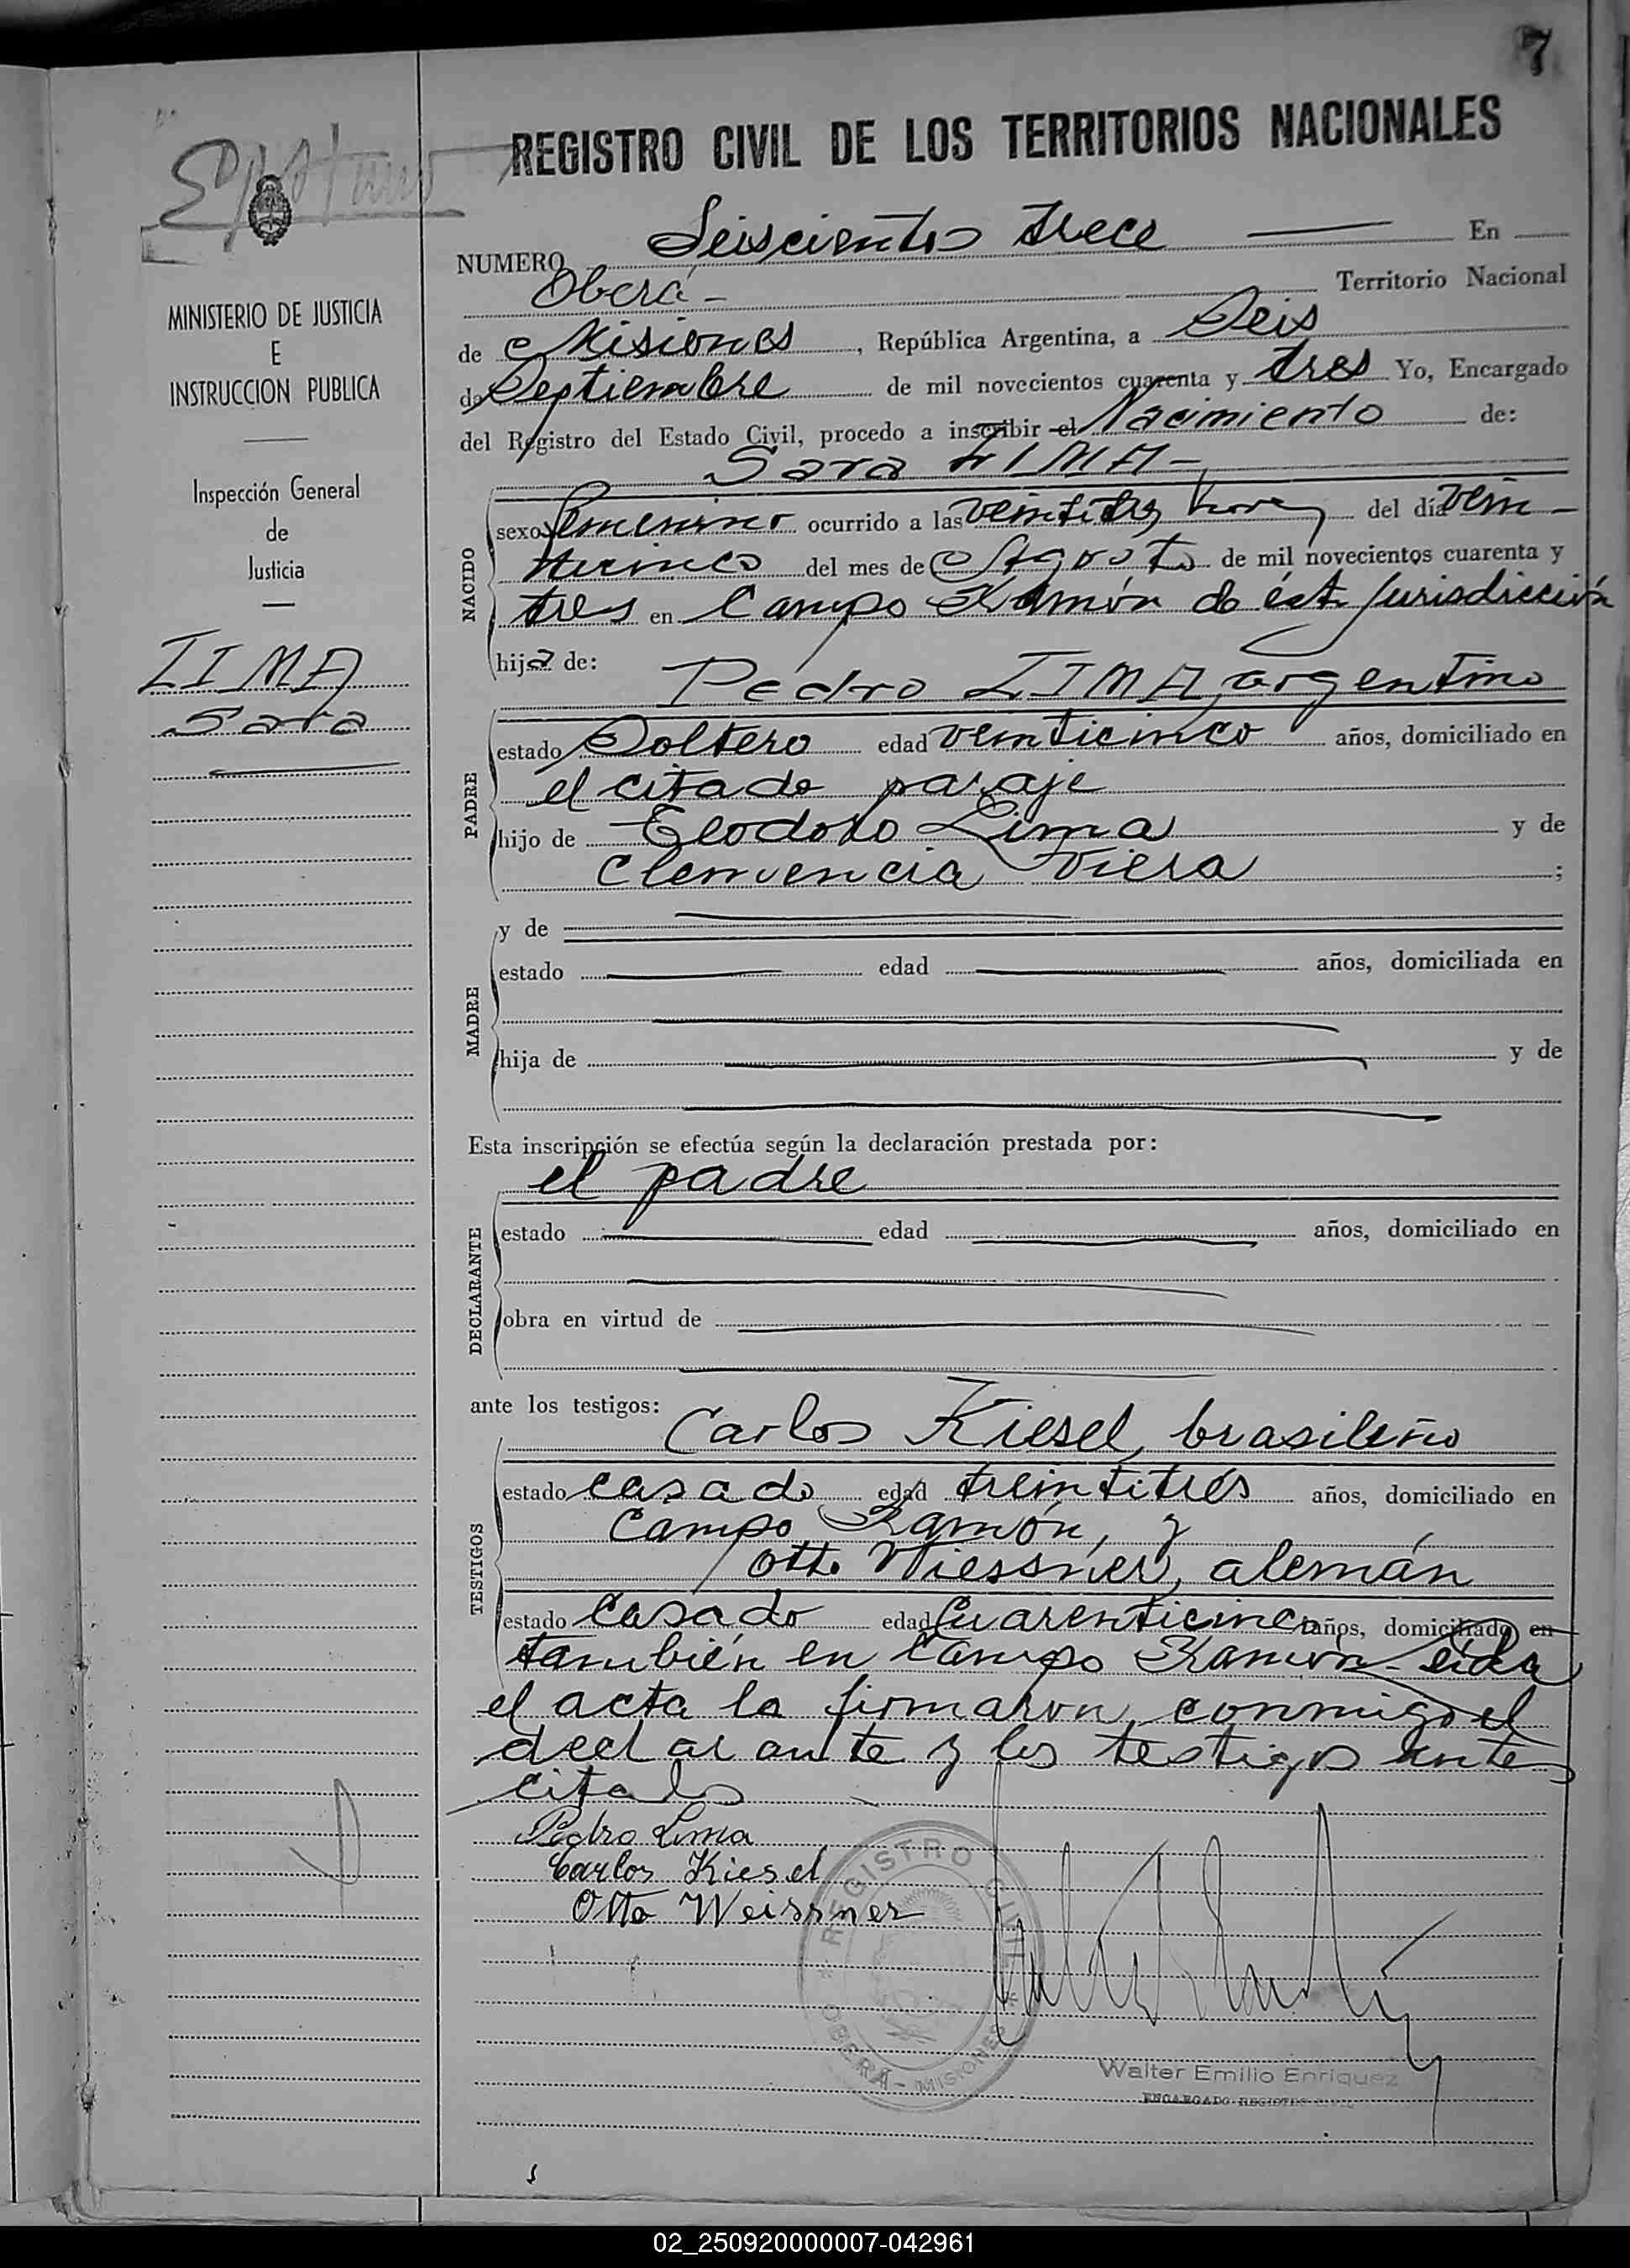 7
REGISTRO CIVIL DE LOS TERRITORIOS NACIONALES
NUMERO Seiscientos trece En
Oberá - Territorio Nacional
de Misiones, República Argentina, a Seis
de Septiembre de mil novecientos cuarenta y tres Yo, Encargado
del Registro del Estado Civil, procedo a inscribir el Nacimiento de:
Sara LIMA -
NACIDO
sexo femenino ocurrido a las veintidos horas del día vein-
ticinco del mes de Agosto de mil novecientos cuarenta y
tres en Campo Ramón de ést. Jurisdicción
hija de:
Pedro LIMA, argentino
PADRE
estado Soltero edad veinticinco años, domiciliado en
el citado paraje
hijo de Teodoro Lima y de
Clemencia Viera ;
MADRE
y de
estado edad años, domiciliada en
hija de y de
Esta inscripción se efectúa según la declaración prestada por:
el padre
DECLARANTE
estado edad años, domiciliado en
obra en virtud de
ante los testigos:
Carlos Kiesel, brasileño
TESTIGOS
estado casado edad treintitrés años, domiciliado en
Campo Ramón, y
Otto Wiessner, alemán
estado Casado edad cuarenticinco años, domiciliado en
también en Campo Ramón - Leída
el acta la firmaron conmigo el
declarante y los testigos antes
citados
Pedro Lima
Carlos Kiesel
Otto Weissner
REGISTRO CIVIL
OBERÁ - MISIONES
Walter Emilio Enriquez
ENCARGADO REGISTRO CIVIL
MINISTERIO DE JUSTICIA
E
INSTRUCCION PUBLICA
Inspección General
de
Justicia
LIMA
Sara
02_250920000007-042961